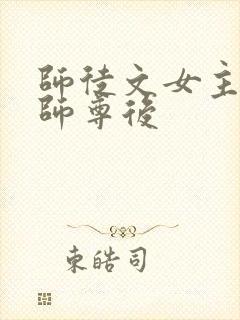 師徒文女主
師尊後
東皓司